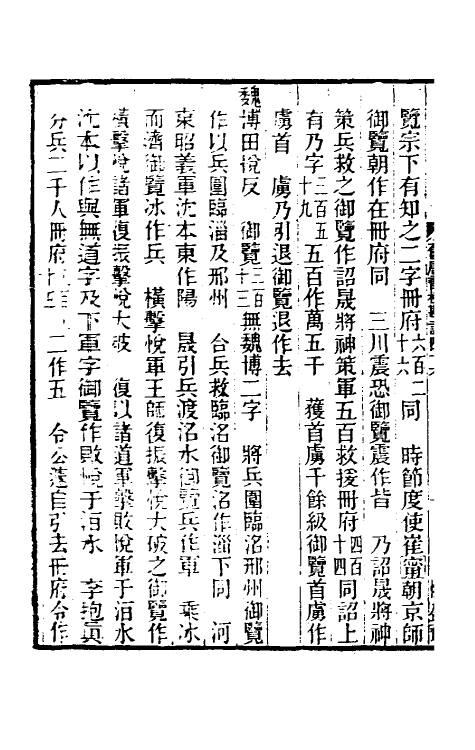 覽宗下有知之二字冊府六百二十六同　時節度使崔寧朝京師
御覽朝作在冊府同　三川震恐御覽震作皆　乃詔晟將神
策兵救之御覽作詔晟將神策軍五百救援冊府四百十四同詔上
有乃字三百五十九五百作萬五千　獲首虜千餘級御覽首虜作
虜首　虜乃引退御覽退作去
魏博田悅反　御覽三百十三無魏博二字　將兵圍臨洺邢州御覽
作以兵圍臨淄及邢州　合兵救臨洺御覽洺作淄下同　河
東昭義軍沈本東作陽　晟引兵渡洺水御覽兵作軍　乘冰
而濟御覽冰作兵　橫擊悅軍王師復振擊悅大破之御覽作
橫擊悅諸軍復振擊悅大破　復以諸道軍擊敗悅軍于洹水
沈本以作與無道字及下軍字御覽作敗悅于洹水　李抱真
分兵二千人冊府　二作五　令公遂自引去冊府令作